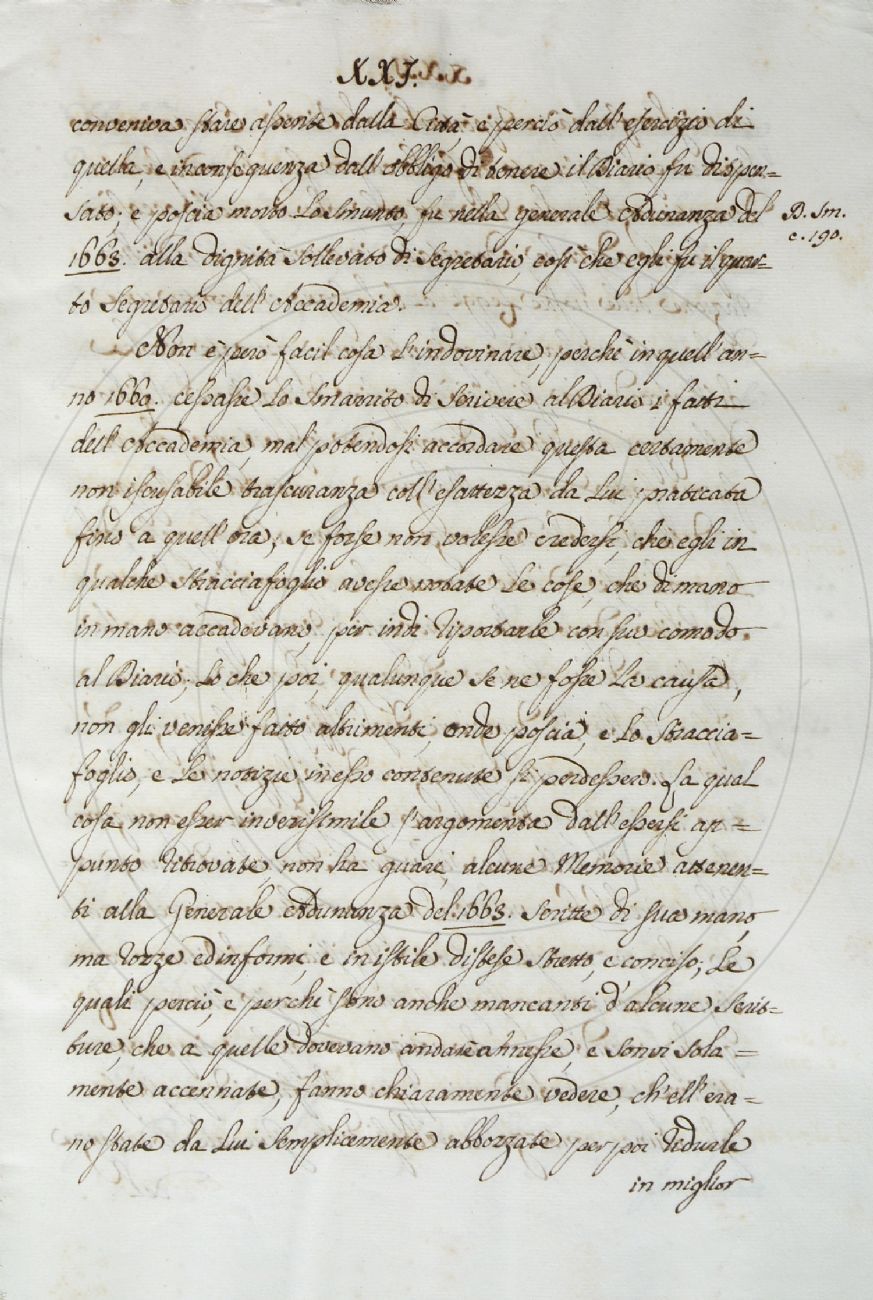 XXI.
conveniva stare assente dalla Città, e perciò dall'esercizio di
quella, e in conseguenza dall'obbligo di tenere il Diario fu dispen=
sato; e poscia morto Lo Smunto, fu nella generale Adunanza del
D. Sm.
c. 190.
1663. alla dignità sollevato di Segretario, così che egli fu il quar=
to Segretario dell'Accademia.
Non è però facil cosa l'indovinare, perchè in quell'an=
no 1660. cessasse Lo Smarrito di scrivere al Diario i fatti
dell'Accademia, mal potendosi accordare questa certamente
non iscusabile trascuranza coll'esattezza da Lui praticata
fino a quell'ora; se forse non volesse credersi, che egli in
qualche stracciafoglio avesse notate Le cose, che di mano
in mano accadevano per indi riportarle con suo comodo
al Diario; Lo che poi, qualunque se ne fosse La causa,
non gli venisse fatto altrimenti, onde poscia, e Lo straccia=
foglio, e Le notizie in esso contenute si perdessero. La qual
cosa non esser inverisimile s'argomenta dall'essersi ap=
punto ritrovate, non ha guari, alcune Memorie attenen=
ti alla Generale Adunanza del 1663. scritte di sua mano,
ma rozze ed informi, e in istile distese stretto, e conciso; Le
quali perciò, e perchè sono anche mancanti d'alcune scrit=
ture, che a quelle dovevano andare annesse, e sonvi sola=
mente accennate, fanno chiaramente vedere, ch'ell'era=
no state da Lui semplicemente abbozzate per poi ridurle
in miglior